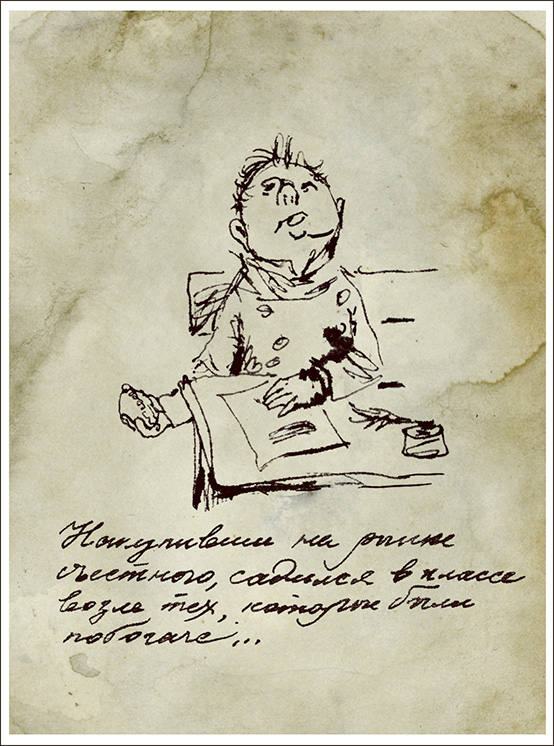 Накупивши на рынке
съестного, садился в классе
возле тех, которые были
побогаче...